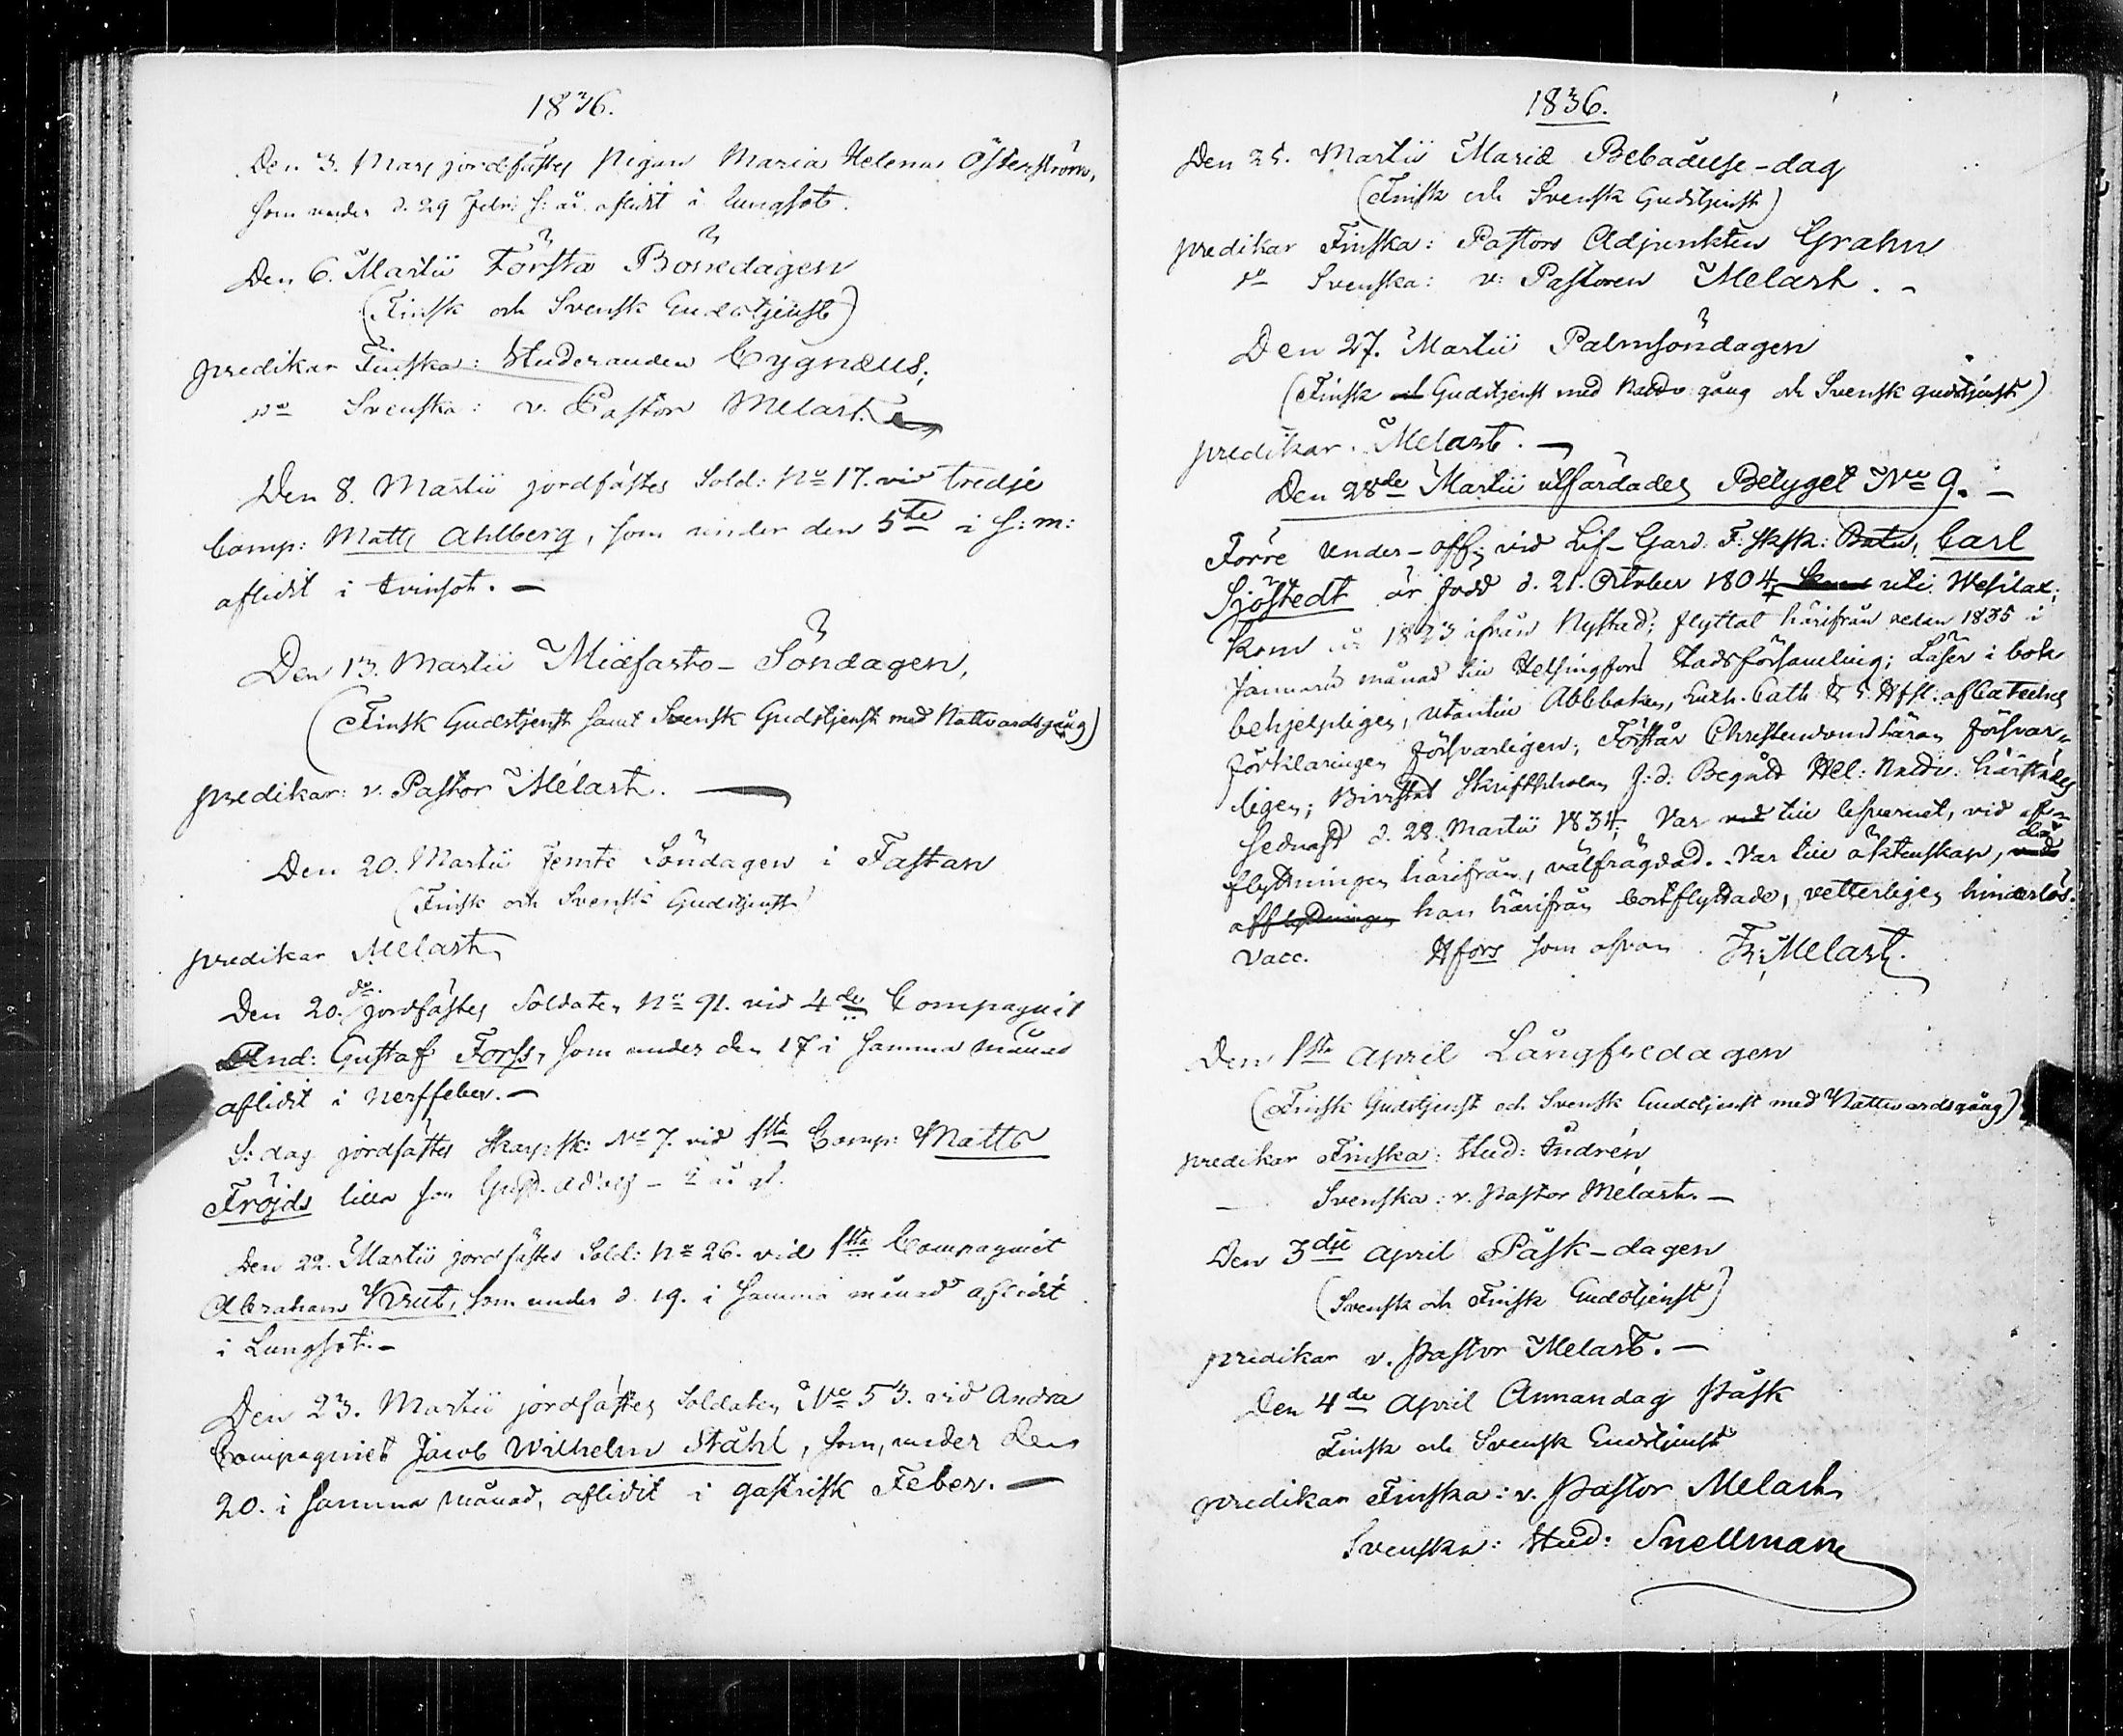 1836.
Den 3. Mars jordfästes Pigan Maria Helena Österström,
som under d. 29 Febr: s: år aflidit i lungsot.
Den 6. Martii Första Bönedagen
(Finsk och Svensk Gudstjenst)
predikar Finska: Studeranden Cygnæus;
do Svenska: v. Pastor Melart.
Den 8. Martii jordfästes Sold: No 17. vid tredje
Comp: Matts Ahlberg, som under den 5te i s: m:
aflidit i tvinsot. –
Den 13. Martii Midfasto-Söndagen,
(Finsk Gudstjenst samt Svensk Gudstjenst med Nattvardsgång)
predikar: v. Pastor Melart. —
Den 20. Martii Femte Söndagen i Fastan
(Finsk och Svensk Gudstjenst)
predikar Melart
Den 20. do. jordfästes Soldaten No 91. vid 4de Compagniet
And: Gustaf Forss, som under den 17 i samma månad
aflidit i Nerffeber. –
S: dag jordfästes Skarpsk: No 7. vid 1sta Comp: Matts
Fröjds lilla son Gust. Adolf –
Den 22. Martii jordfästes Sold: No 26. vid 1sta Compagniet
Abraham Krut, som under d. 19. i samma månad aflidit
i Lungsot. –
Den 23. Martii jordfästes Soldaten No 53. vid Andra
Compagniet Jacob Wilhelm Ståhl, som, under den
20. i samma månad, aflidit i gastrisk Feber. —
1836.
Den 25. Martii Mariæ Bebådelse-dag
(Finsk och Svensk Gudstjenst)
predikar Finska: Pastors Adjunkten Grahn
do Svenska: v: Pastoren Melart. –
Den 27. Martii Palmsöndagen
(Finsk Gudstjenst med Nattv. gång och Svensk gudstjenst)
predikar. Melart. –
Den 28de Martii utfärdades Betyget No 9. –
Förre Under-off: vid Lif-Gard. F. Sksk: Batn, Carl
Sjöstedt är född d. 21. October 1804 uti Wesilax;
Kom år 1823 ifrån Nystad; flyttat härifrån redan 1835 i
Januarii månad till Helsingfors Stadsförsamling; Läser i bok
behjelpligen, utantill Abbboken, Luth. Cath. & S. Hfsl. af Cateches
förklaringen försvarligen; Förstår Christendoms Läran försvar-
ligen; Bivistat Skriftskolan J: d: Begått Hel: Nattv: härstädes
sednast d. 28. Martii 1834; Var till lefvernet, vid af-
flyttningen härifrån, välfrägdad. Var till äktenskap, då
han härifrån bortflyttade, vetterligen hinderlös.
Vacc. Hfors som ofvan Fr: Melart.
Den 1sta April Långfredagen
(Finsk Gudstjenst och Svensk Gudstjenst med Nattvardsgång)
predikar Finska: Stud: Andrén
– Svenska: v. Pastor Melart. –
Den 3dje April Påsk-dagen
(Svensk och Finsk Gudstjenst)
predikar v. Pastor Melart. –
Den 4de April Annandag Påsk
Finsk och Svensk Gudstjenst
predikar Finska: v. Pastor Melart
Svenska: Stud: Snellman